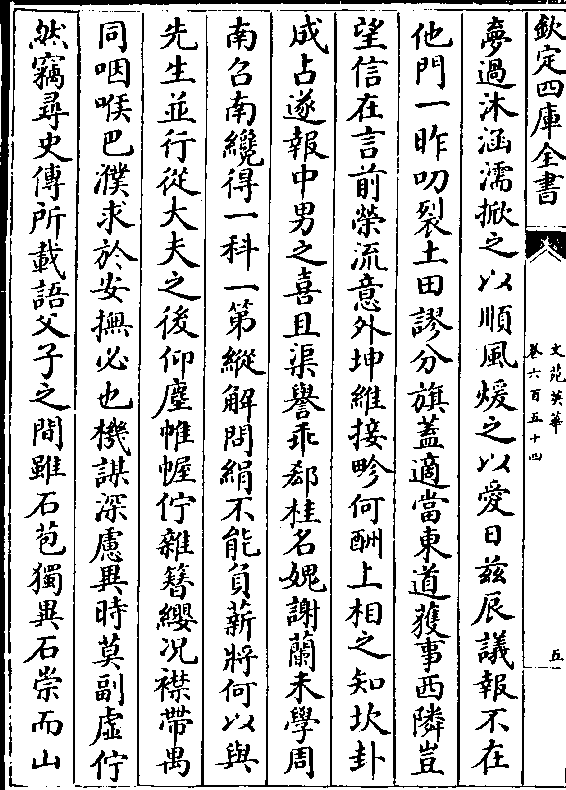 欽定四庫全書
文苑英華
卷六百五十四
五
夢過沐涵濡掀之以順風煖之以愛日兹辰議報不在
他門一昨叨裂土田謬分旗蓋適當東道獲事西隣豈
望信在言前榮流意外坤維接畛何酬上相之知坎卦
成占遂報中男之喜且渠譽乖郄桂名媿謝蘭未學周
南召南纔得一科一第縱解問絹不能負薪將何以與
先生並行從大夫之後仰塵帷幄佇雜簪纓况襟帶禺
同咽喉巴濮求於安撫必也機謀深慮異時莫副虛佇
然竊尋史傳所載語父子之間雖石苞獨異石崇而山